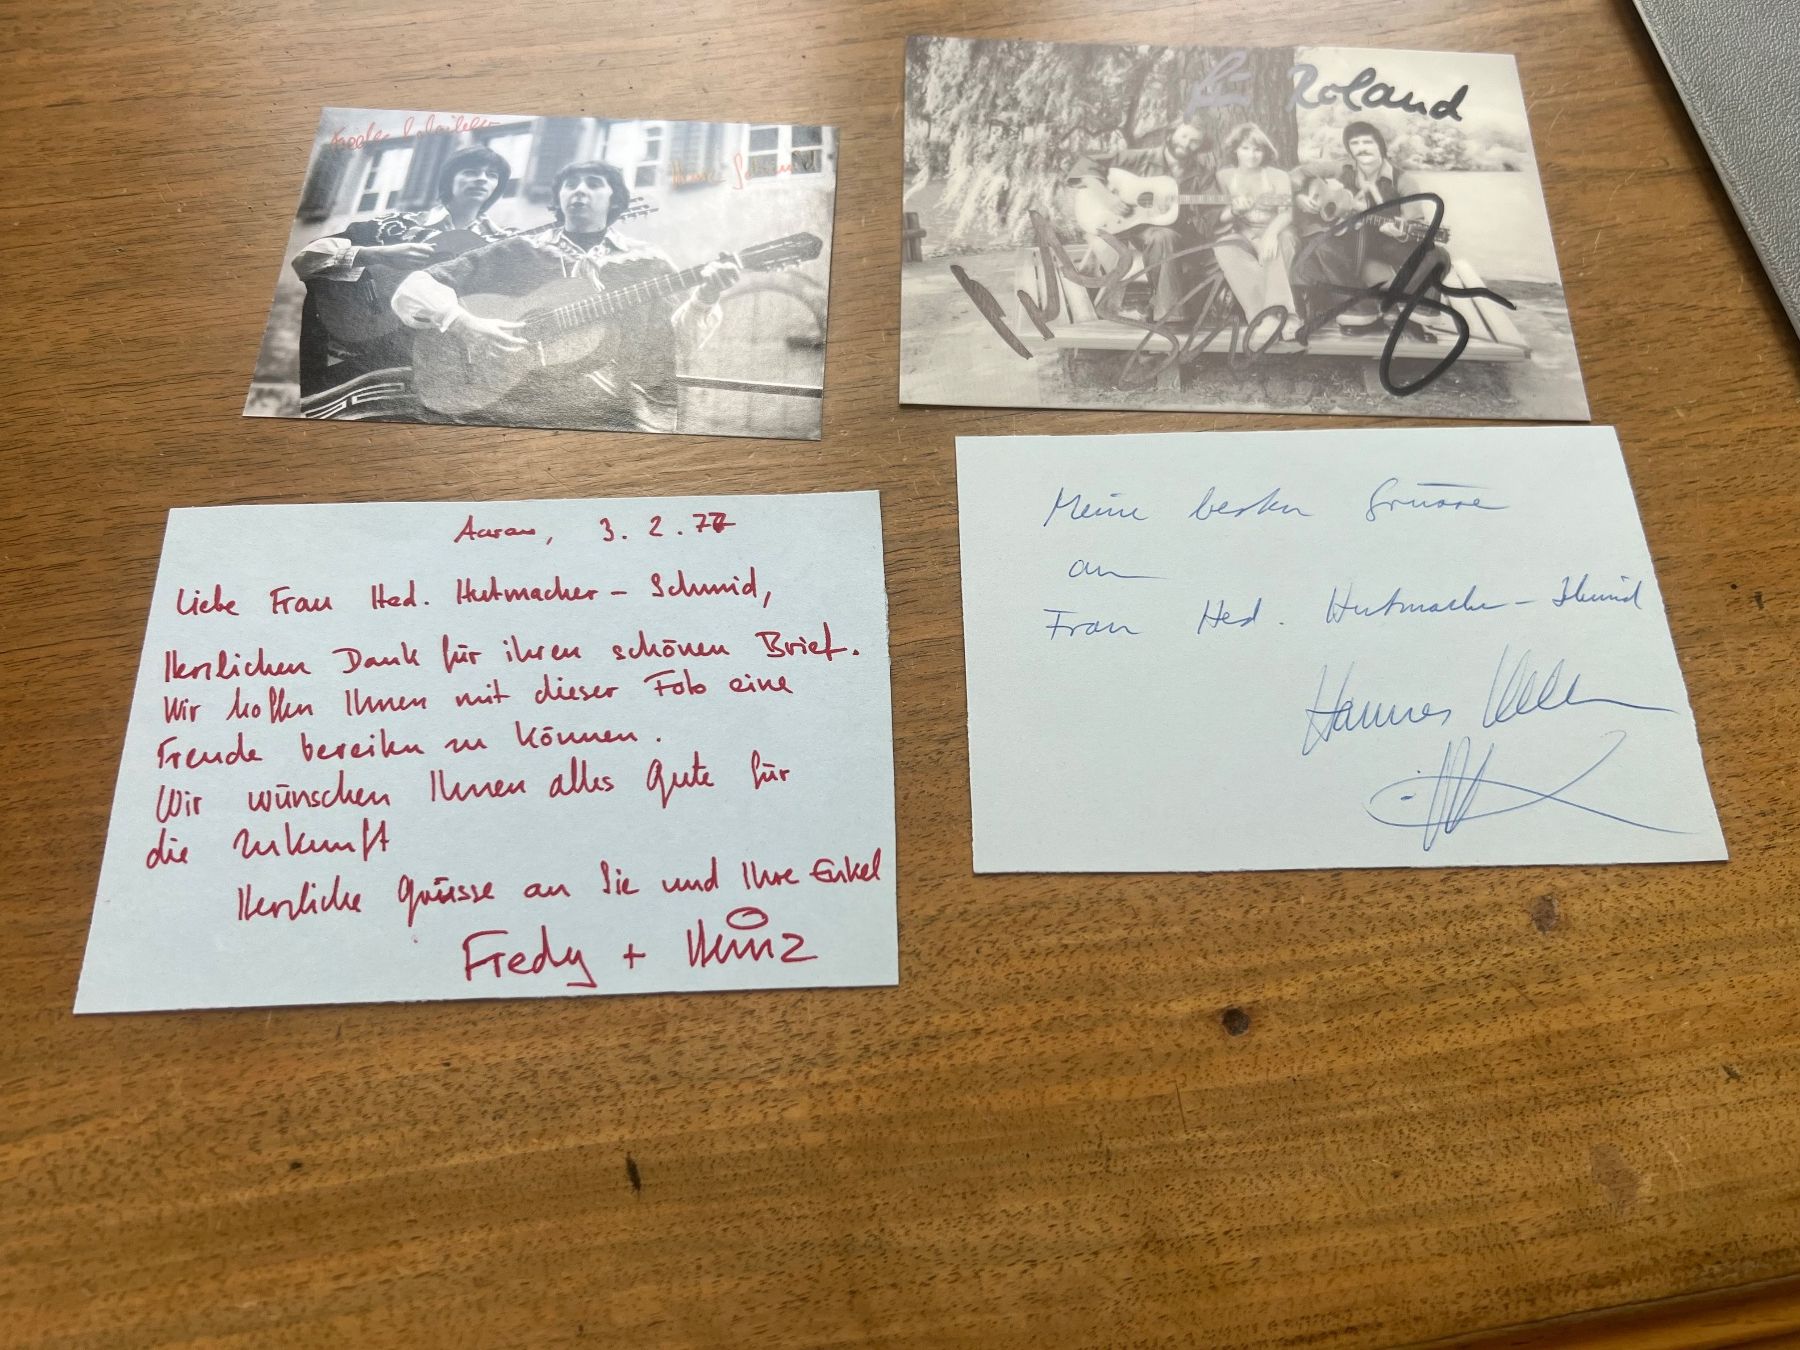 Für Roland
Aarau, 3. 2. 77
Liebe Frau Hed. Hutmacher - Schmid,
Herzlichen Dank für ihren schönen Brief.
Wir hoffen Ihnen mit dieser Foto eine
Freude bereiten zu können.
Wir wünschen Ihnen alles Gute für
die Zukunft
Herzliche Grüsse an Sie und Ihre Enkel
Fredy + Heinz
Meine besten Grüsse
an
Frau Hed. Hutmacher - Schmid
Hannes